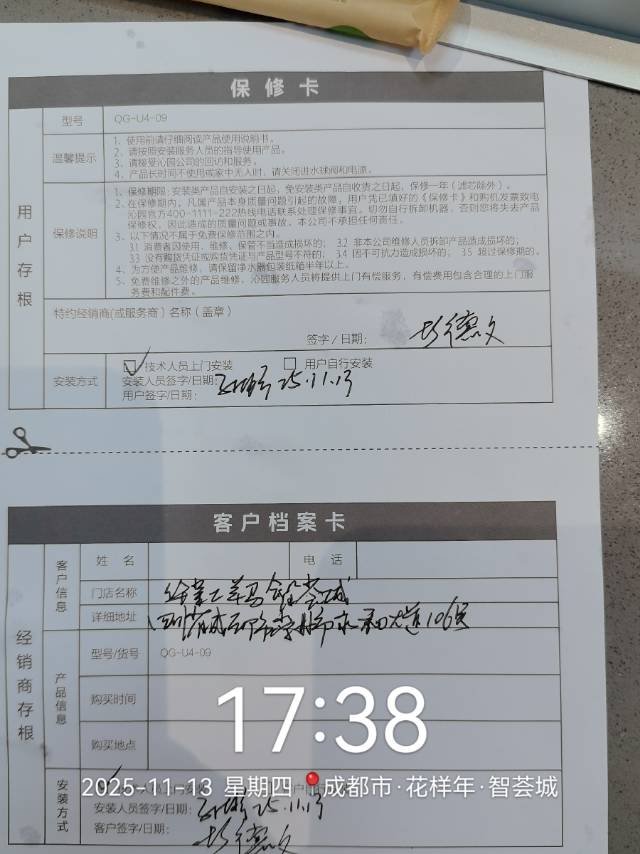 保修卡
用户存根
型号 QG-U4-09
温馨提示
1. 使用前请仔细阅读产品使用说明书。
2. 请按照安装服务人员的指导使用产品。
3. 请接受沁园公司的回访和服务。
4. 产品长时间不使用或家中无人时，请关闭进水球阀和电源。
保修说明
1. 保修期限：安装类产品自安装之日起，免安装类产品自收货之日起，保修一年（滤芯除外）。
2. 在保修期内，凡属产品本身质量问题引起的故障，用户凭已填好的《保修卡》和购机发票致电
沁园官方400-1111-222热线电话联系处理保修事宜。切勿自行拆卸机器，否则您将失去产品
保修权，因此造成的质量问题或事故，本公司不承担任何责任。
3. 以下情况不属于免费保修范围之内。
3.1 消费者因使用、维修、保管不当造成损坏的； 3.2 非本公司维修人员拆卸产品造成损坏的；
3.3 没有购货凭证或购货凭证与产品型号不符的； 3.4 因不可抗力造成损坏的； 3.5 超过保修期的。
4. 为方便产品维修，请保留净水器包装纸箱半年以上。
5. 免费维修之外的产品维修，沁园服务人员将提供上门有偿服务，有偿费用包含合理的上门服
务费和配件费。
特约经销商(或服务商）名称（盖章）
签字 / 日期：
安装方式
技术人员上门安装 用户自行安装
安装人员签字/日期： 25.11.13
用户签字/日期：
客户档案卡
经销商存根
客户信息
姓 名 电 话
门店名称
详细地址 106号
产品信息
型号/货号 QG-U4-09
购买时间
17:38
购买地点
2025-11-13 星期四 成都市·花样年·智荟城
安装方式
安装人员签字/日期： 25.11.13
客户签字/日期：